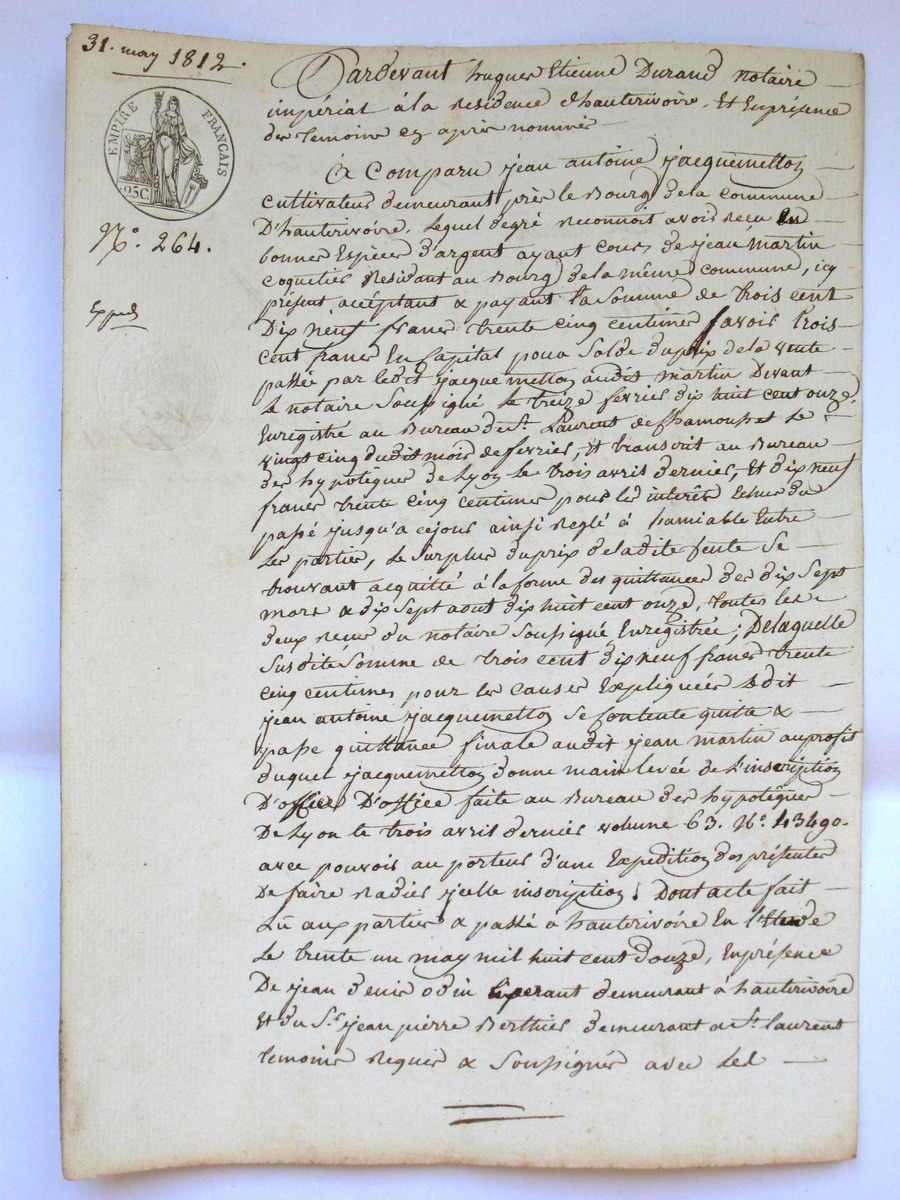 31. may 1812.
EMPIRE FRANÇAIS
25C
N.° 264.
Exped
Pardevant hugues Etienne Durand notaire
impérial à la Residence d'hauterivoire, Et Enprésence
des temoins cy après nommés
A Comparu jean antoine jacquemetton
cultivateur demeurant près le Bourg de la commune
D'hauterivoire, Lequel degré reconnoit avoir reçu En
bonnes Espèces d'argent ayant cours de jean martin
coquetier Residant au Bourg de la même commune, icy
présent aceptant & payant la Somme de trois cent
Dix neuf francs trente cinq centimes savoir trois
cent francs En capital pour Solde du prix de la vente
passée par ledit jacquemetton audit martin Devant
Le notaire Soussigné Le treize fevrier dix huit cent onze,
Enregistré au Bureau de St. Laurent de Chamousset Le
vingt cinq dudit mois de fevrier, & transcrit au Bureau
des hypotèques de Lyon le trois avril dernier, Et dix neuf
francs trente cinq centimes pour les interêts Echus du
passé jusqu'a cejour ainsi Reglé à Lamiable Entre
Les parties, Le Surplus du prix de ladite vente Se
trouvant acquitté à la forme des quittances des dix Sept
mars & dix Sept aout dix huit cent onze, toutes les
deux reçues du notaire Soussigné Enregistrée; De laquelle
Susdite Somme de trois cent dix neuf francs trente
cinq centimes pour les causes Expliquées Ledit
jean antoine jacquemetton Se Contente quitte &
passe quittance finale audit jean martin auprofit
duquel jacquemetton donne main levée de L'inscription
D'office D'office faite au Bureau des hypotêques
De Lyon le trois avril dernier volume 63. N.° 43490.
avec pouvoir au porteur d'une Expedition des présentes
De faire radier jcelle inscription. Dont acte fait
Lu aux parties & passé à hauterivoire En l'Etude
Le trente un may mil huit cent douze, Enprésence
De jean denis odin demeurant à hauterivoire
Et du Sr. jean pierre Berthier demeurant a St. laurent
temoins Requis & Soussignés avec Led